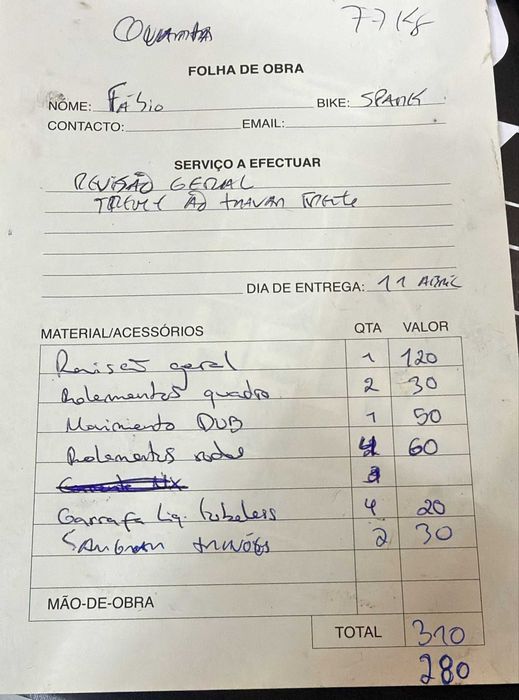 77 Kg
FOLHA DE OBRA
NOME: Fábio BIKE: SPANK
CONTACTO: EMAIL:
SERVIÇO A EFECTUAR
REVISÃO GERAL
TREME AO TRAVAR FRENTE
DIA DE ENTREGA: 11 ABRIL
MATERIAL/ACESSÓRIOS QTA VALOR
Revisão geral 1 120
Rolamentos quadro 2 30
Movimento DUB 1 50
Rolamentos rodas 4 60
Garrafa Liq. tubeless 4 20
SANGRAR TRAVÕES 2 30
MÃO-DE-OBRA
TOTAL 310
280